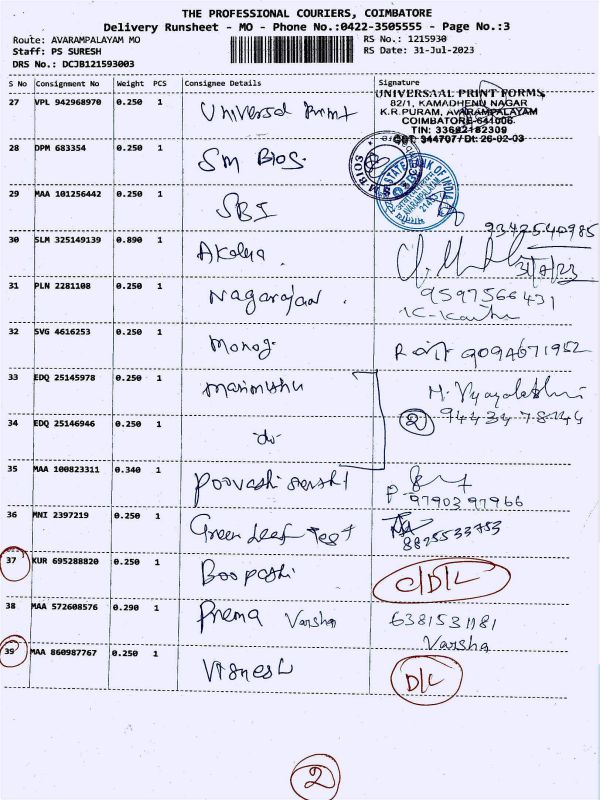 THE PROFESSIONAL COURIERS, COIMBATORE
Delivery Runsheet - MO - Phone No.:0422-3505555 - Page No.:3
Route: AVARAMPALAYAM MO RS No.: 1215930
Staff: PS SURESH RS Date: 31-Jul-2023
DRS No.: DCJB121593003
S No Consignment No Weight PCS Consignee Details Signature
27 VPL 942968970 0.250 1 Universal Print
UNIVERSAAL PRINT FORMS
82/1, KAMADHENU NAGAR
K.R.PURAM, AVARAMPALAYAM
COIMBATORE-641006
TIN: 33692182309
CST: 344707/Dt: 26-02-03
28 DPM 683354 0.250 1 SM BIOS.
SM BIOS
STATE BANK OF INDIA
AVARAMPALAYAM
29 MAA 101256442 0.250 1 SBI
30 SLM 325149139 0.890 1 9342540985
31/7/23
31 PLN 2281108 0.250 1 Nagarajan . 9597566431
32 SVG 4616253 0.250 1 Manoj. 9094671952
33 EDQ 25145978 0.250 1 Marimuthu
34 EDQ 25146946 0.250 1 do 2
35 MAA 100823311 0.340 1 9790397966
36 MNI 2397219 0.250 1 Green Leaf Test 8825533753
37 KUR 695288820 0.250 1 Boopathi C/D/L
38 MAA 572608576 0.290 1 Prema Varsha 6381531181
Varsha
39 MAA 860987767 0.250 1 Vignesh D/L
2